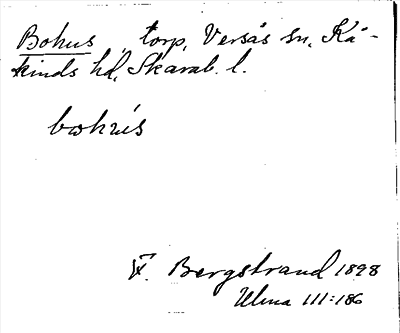 Bohus, torp, Versås sn, Kå-
kinds hd, Skarab. l.
bohús
V. Bergstrand 1898
Ulma 111:186